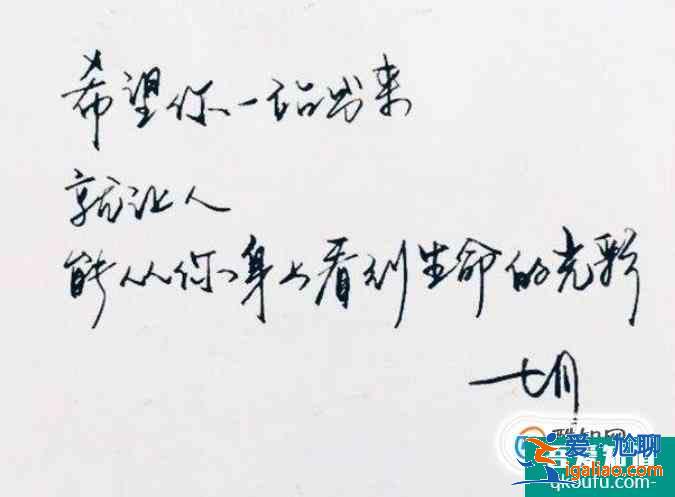 希望你一站出来
就让人
能从你身上看到生命的光彩
七月
酷知网
爱尴聊
igaliao.com
qkoufu.com-